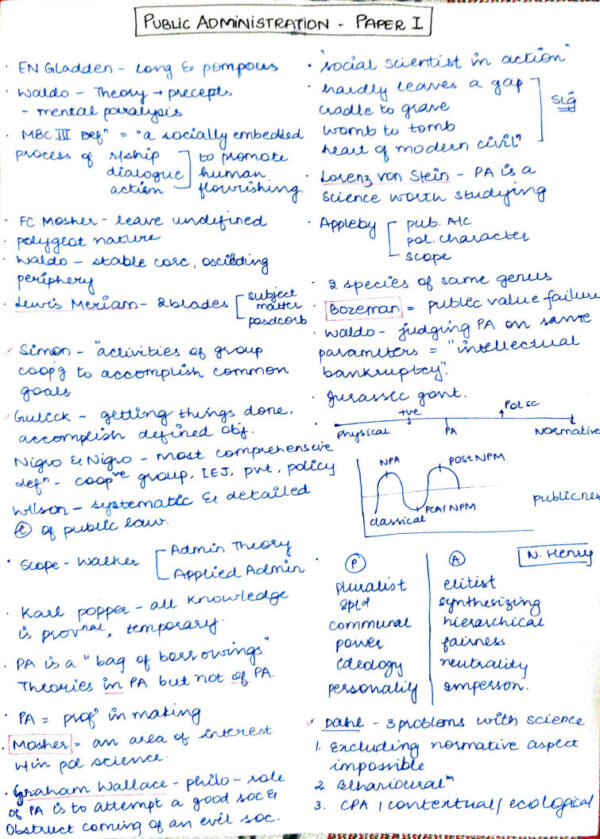 PUBLIC ADMINISTRATION - PAPER I
· EN Gladden - long & pompous
· Waldo - Theory → precepts
- mental paralysis
· MBC III Defⁿ = "a socially embedded
process of r/ship
dialogue
action
to promote
human
flourishing.
· FC Mosher - leave undefined
· polyglot nature
· Waldo - stable core, oscillating
periphery
· Lewis Meriam - 2 blades
subject
matter
posdcorb
Simon - "activities of group
coopg to accomplish common
goals
· Gulick - getting things done,
accomplish defined obj.
Nigro & Nigro - most comprehensive
defⁿ - coopve group, LEJ, pvt, policy
Wilson - systematic & detailed
of public law.
· Scope - Walker
Admin Theory
Applied Admin
· Karl popper - all knowledge
is provnal, temporary.
· PA is a "bag of borrowings"
Theories in PA but not of PA.
· PA = profⁿ in making
· Mosher = an area of interest
w/in pol science.
· Graham Wallace - philo - role
of PA is to attempt a good soc &
obstruct coming of an evil soc.
· "social scientist in action"
· hardly leaves a gap
cradle to grave
womb to tomb
heart of modern civil"
Slg
· Lorenz von Stein - PA is a
science worth studying
· Appleby
pub. A/c
pol. character
scope
· 2 species of same genus
· Bozeman = public value failure
· Waldo - judging PA on same
parameters = "intellectual
bankruptcy".
· Jurassic govt.
+ve
Pol sc.
Physical
PA
Normative
NPA
POST NPM
classical
PCA/NPM
publicnes
P
A
N. Henry
pluralist
elitist
spld
synthesizing
communal
hierarchical
power
fairness
ideology
neutrality
personality
imperson.
Dahl - 3 problems with science
1. Excluding normative aspect
impossible
2. Behaviouralm
3. CPA / contextual / ecological